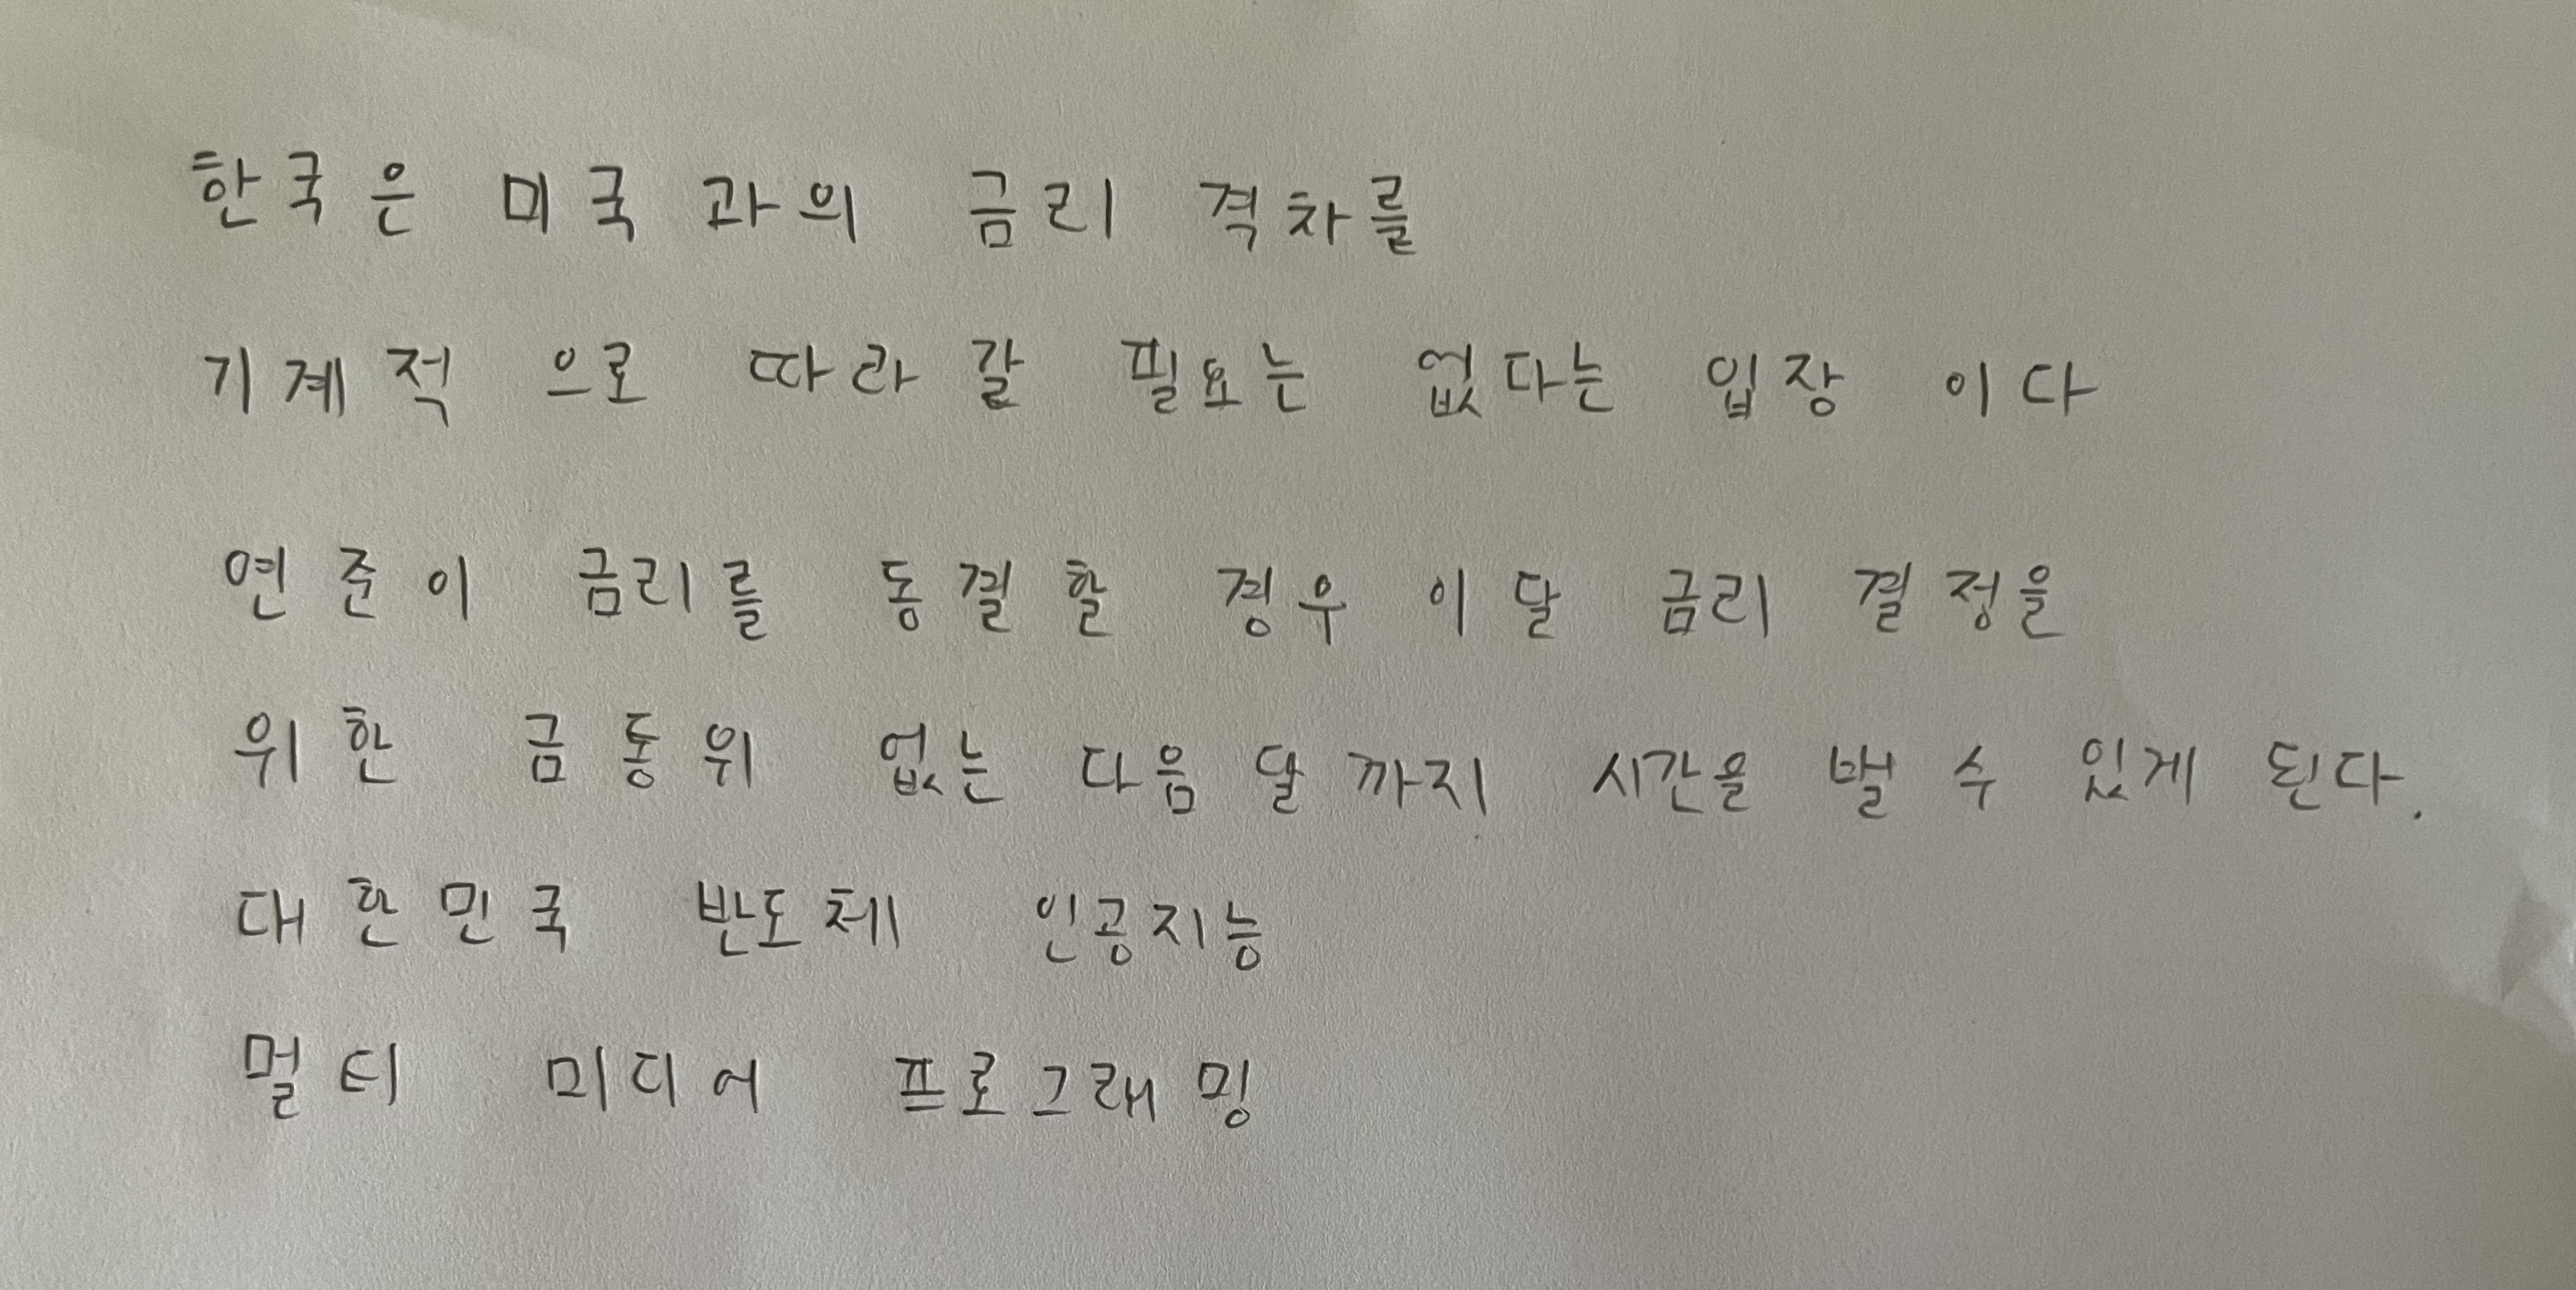 한국은 미국과의 금리 격차를
기계적 으로 따라 갈 필요는 없다는 입장 이다
연준이 금리를 동결할 경우 이달 금리 결정을
위한 금통위 없는 다음 달까지 시간을 벌 수 있게 된다.
대한민국 반도체 인공지능
멀티 미디어 프로그래밍